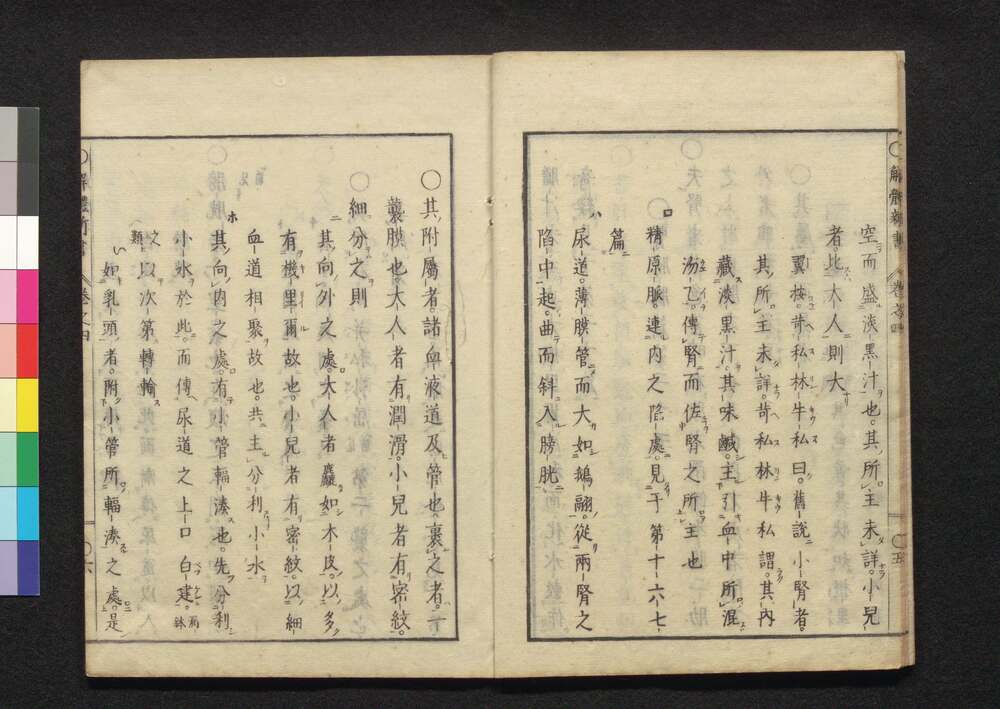 解體新書 卷之四 〇五
空而盛淡黑汁也其所主未詳小兒
者比大人則大
翼按苛私林牛私曰舊說小腎者
其所主未詳苛私林牛私謂其內
藏淡黑汁其味鹹主引血中所混
汾乙傳腎而佐腎之所主也
ロ
〇精原脈連內之陰處見于第十六七
篇
ハ
尿道薄膜管而大如鵝翮從兩腎之
陷中起曲而斜入膀胱
〇其附屬者諸血液道及管也裹之者
囊膜也大人者有潤滑小兒者有密紋
〇細分之則
ニ
其向外之處大人者麤如木皮以多
有機里爾故也小兒者有密紋以細
血道相聚故也共主分利小水
ホ
其向內之處有小管輻湊也先分利
小水於此而傳尿道之上口 白建
之類以次第轉輸
い
如乳頭者附小管所輻湊之處是
解體新書 卷之四 〇六